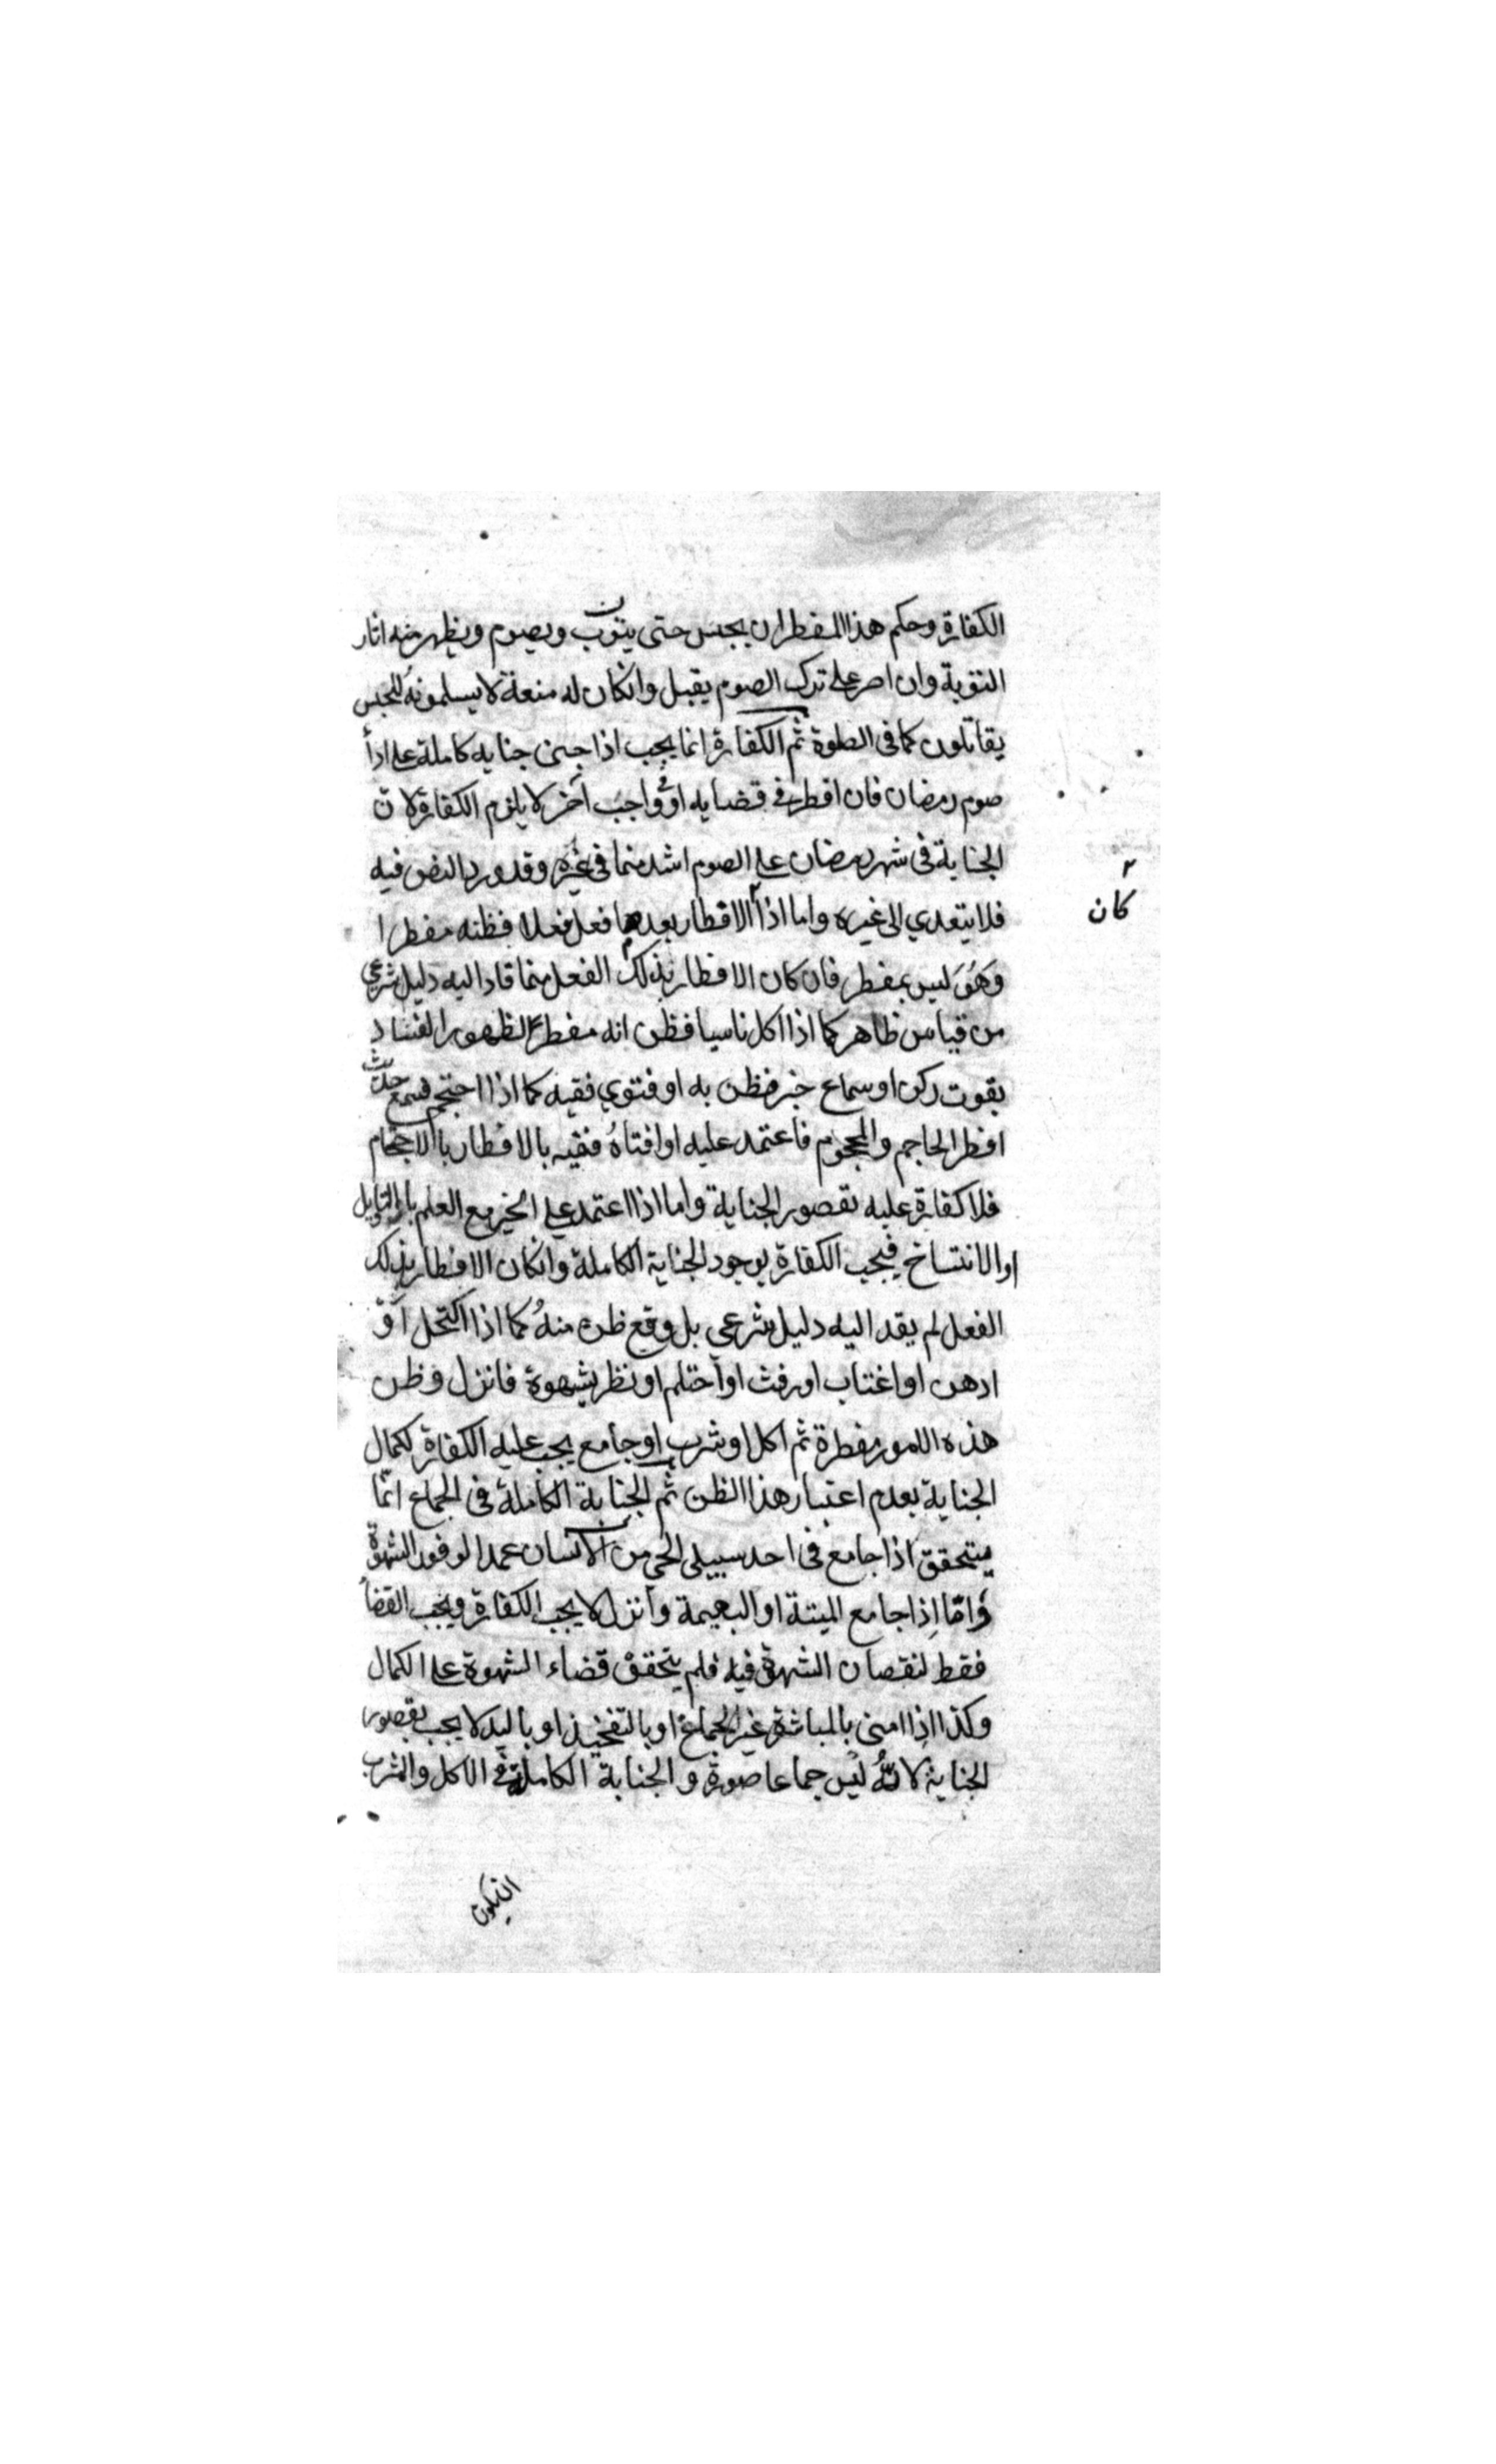 الكفارة وحكم هذا المفطر ان يحبس حتى يتوب ويصوم ويظهر منه اثار
التوبة وان اصر على ترك الصوم يقبل وانكان له منعة لا يسلمونه للحبس
يقاتلون كما فى الصلوة ثم الكفارة انما يجب اذا جنى جنايه كاملة على ادأ
صوم رمضان فان افطر فى قضايه او واجب آخر لا يلزم الكفارة لان
الجناية فى شهر رمضان على الصوم اشد منما فى غيره وقد ورد النص فيه
فلا يتعدي الى غيره واما اذا الافطار بعدما فعل فعلا فظنه مفطرا
كان
وهو ليس بمفطر فان كان الافطار بذلك الفعل منما قاد اليه دليل شرعي
من قياس ظاهر كما اذا اكل ناسيا فظن انه مفطر لظهور الفساد
بفوت ركن او سماع خبر فظن به او فتوي فقيه كما اذا احتجم فسمع حديث
افطر الحاجم والمحجوم فاعتمد عليه او افتاه فقيه بالافطار باالاحتجام
فلا كفارة عليه بقصور الجناية واما اذا اعتمد على الخبر مع العلم بالتاويل
او الانتساخ فيجب الكفارة بوجود الجناية الكاملة وانكان الافطار بذلك
الفعل لم يقد اليه دليل شرعي بل وقع ظن منه كما اذا اكتحل او
ادهن او اغتاب او رفث او احتلم او نظر بشهوة فانزل وظن
هذه الامور مفطرة ثم اكل او شرب او جامع يجب عليه الكفارة لكمال
الجناية بعدم اعتبار هذا الظن ثم الجناية الكاملة فى الجماع انما
يتحقق اذا جامع فى احد سبيلى الحي من الانسان عمدا لوفور الشهوة
وامّا اذا جامع الميتة او البهيمة وانزل لا يجب الكفارة ويجب القضأ
فقط لنقصان الشهوة فيه فلم يتحقق قضاء الشهوة على الكمال
وكذا اذا امنى بالمباشرة غير الجماع او بالتفخيذ او باليد لا يجب بقصور
الجناية لانه ليس جماعا صورة والجناية الكاملة فى الاكل والشرب